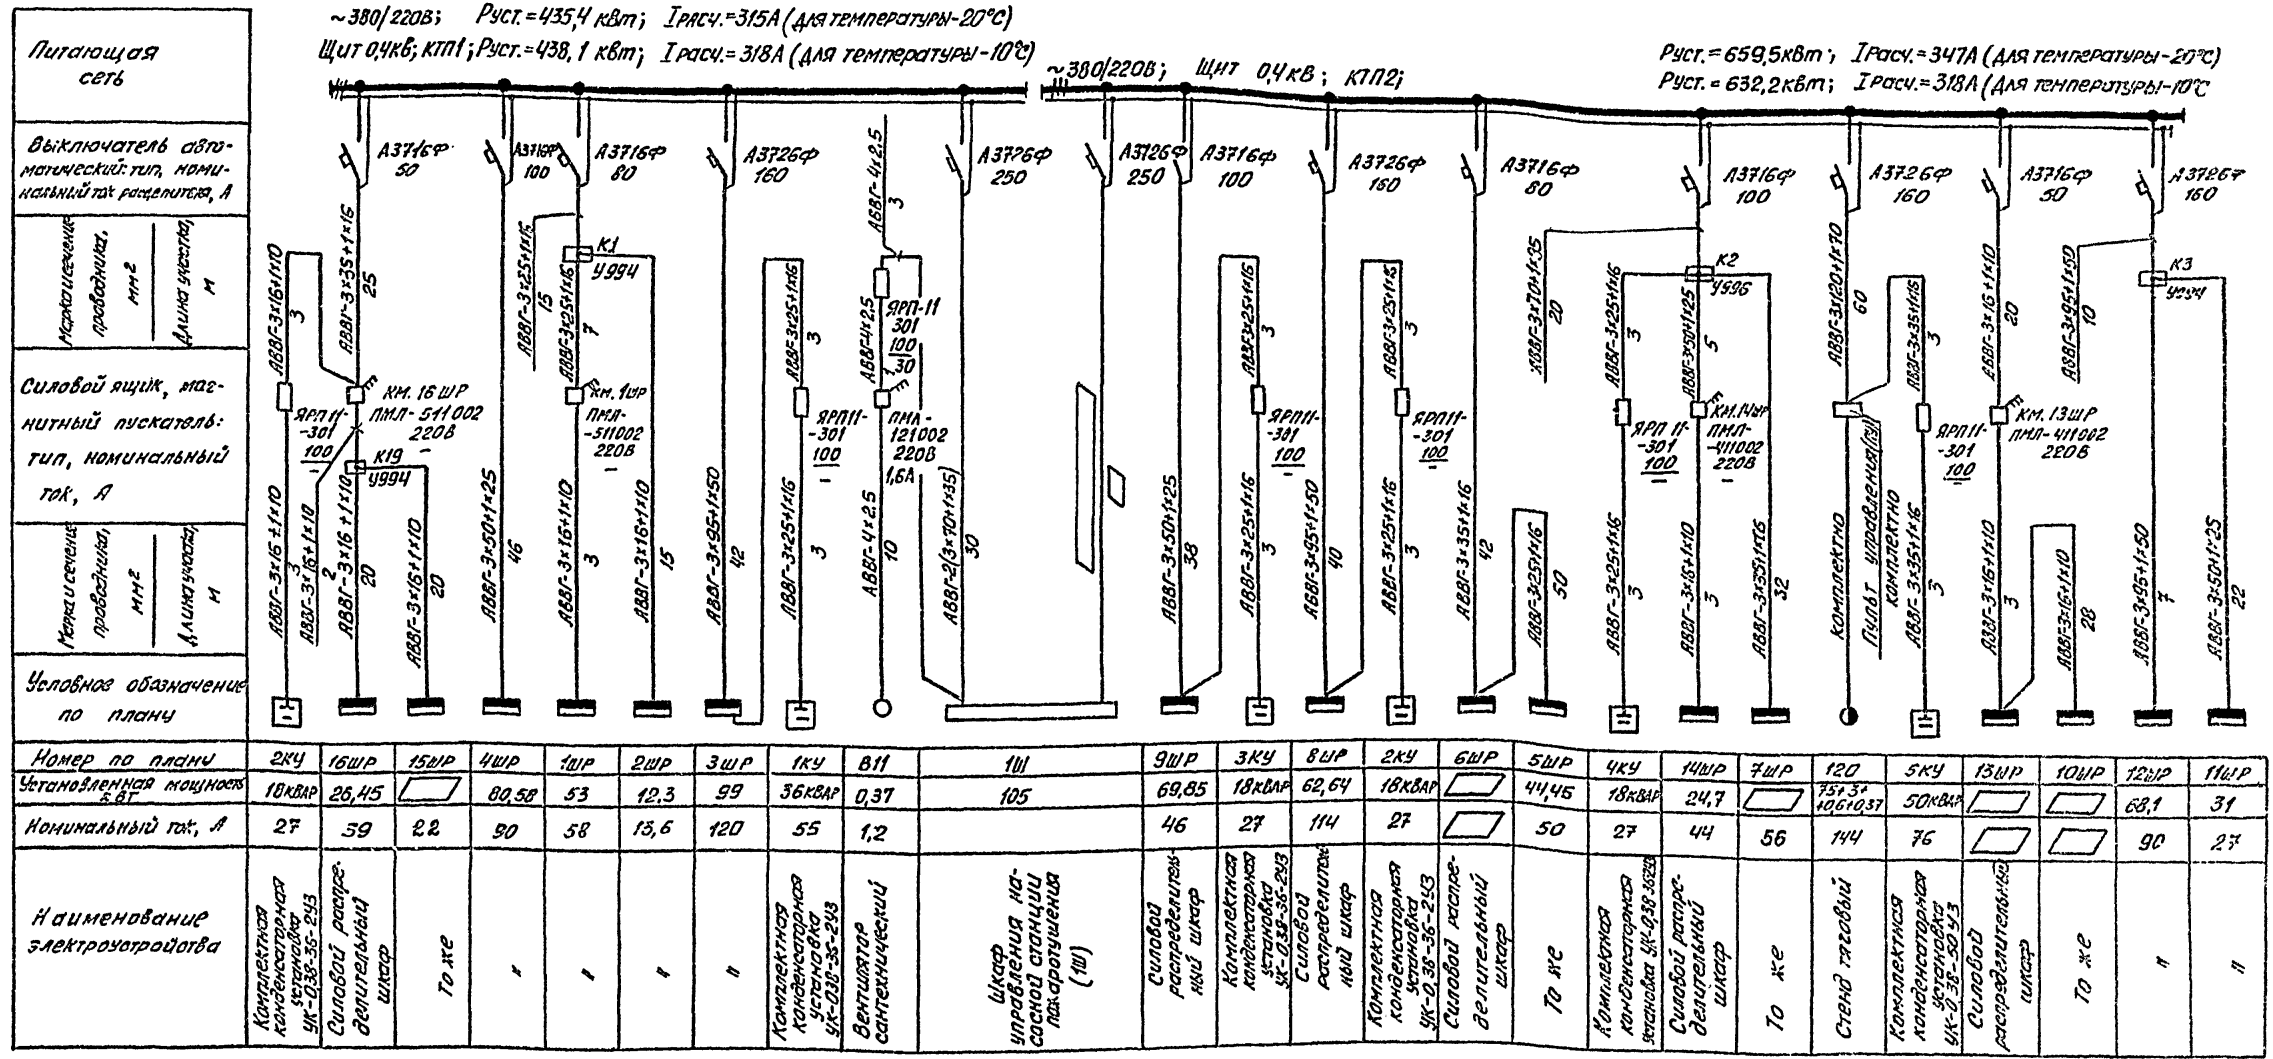 ~380/220В; Руст.=435,4 кВт; Iрасч.=315А (для температуры-20°С)
Щит 0,4кв; КТП1; Руст.=438,1 кВт; Iрасч.=318А (для температуры-10°С)
~380/220В; Щит 0,4кв; КТП2;
Руст.=659,5кВт; Iрасч.=347А (для температуры-20°С)
Руст.=632,2кВт; Iрасч.=318А (для температуры-10°С
Питающая
сеть
Выключатель авто-
матический: тип, номи-
нальный ток расцепителя, А
А3716Ф
50
А3716Ф
100
А3716Ф
80
А3726Ф
160
А3726Ф
250
А3726Ф
250
А3716Ф
100
А3726Ф
160
А3716Ф
80
А3716Ф
100
А3726Ф
160
А3716Ф
50
А3726Ф
160
Марка и сечение
проводника,
мм2
Длина участка,
м
АВВГ-3×16+1×10
3
АВВГ-3×35+1×16
25
АВВГ-3×25+1×16
15
К1
У994
АВВГ-3×25+1×16
7
АВВГ-3×25+1×16
3
АВВГ-4×2,5
3
АВВГ-4×2,5
ЯРП-11
301
100
30
АВВГ-3×25+1×16
3
АВВГ-3×25+1×16
3
АВВГ-3×70+1×35
20
АВВГ-3×25+1×16
3
К2
У996
АВВГ-3×50+1×25
5
АВВГ-3×120+1×70
60
АВВГ-3×35+1×16
3
АВВГ-3×16+1×10
20
АВВГ-3×95+1×50
10
К3
У994
Силовой ящик, маг-
нитный пускатель:
тип, номинальный
ток, А
ЯРП11-
-301
100
КМ. 16ШР
ПМЛ-511002
220В
К19
У994
КМ. 1ШР
ПМЛ-
-511002
220В
ЯРП11-
-301
100
ПМЛ-
121002
220В
1,6А
ЯРП11-
-301
100
ЯРП11-
-301
100
ЯРП11-
-301
100
КМ.14ШР
ПМЛ-
-411002
220В
Пульт управления(ПУ)
комплектно
ЯРП11-
-301
100
КМ. 13ШР
ПМЛ-411002
220В
Марка и сечение
проводника,
мм2
Длина участка,
м
АВВГ-3×16+1×10
3
АВВГ-3×16+1×10
2
АВВГ-3×16+1×10
20
АВВГ-3×16+1×10
20
АВВГ-3×50+1×25
46
АВВГ-3×16+1×10
3
АВВГ-3×16+1×10
15
АВВГ-3×95+1×50
42
АВВГ-3×25+1×16
3
АВВГ-4×2,5
10
АВВГ-2(3×70+1×35)
30
АВВГ-3×50+1×25
38
АВВГ-3×25+1×16
3
АВВГ-3×95+1×50
40
АВВГ-3×25+1×16
3
АВВГ-3×35+1×16
42
АВВГ-3×25+1×16
50
АВВГ-3×25+1×16
3
АВВГ-3×16+1×10
3
АВВГ-3×35+1×16
32
комплектно
АВВГ-3×35+1×16
3
АВВГ-3×16+1×10
3
АВВГ-3×16+1×10
28
АВВГ-3×95+1×50
7
АВВГ-3×50+1×25
22
Условное обозначение
по плану
Номер по плану 2КУ 16ШР 15ШР 4ШР 1ШР 2ШР 3ШР 1КУ В11 1Ш 9ШР 3КУ 8ШР 2КУ 6ШР 5ШР 4КУ 14ШР 7ШР 120 5КУ 13ШР 10ШР 12ШР 11ШР
Установленная мощность кВт 18КВАР 26,45 80,58 53 12,3 99 36КВАР 0,37 105 69,85 18КВАР 62,64 18КВАР 44,45 18КВАР 24,7 75+3+ +0,6+0,37 50КВАР 68,1 31
Номинальный ток, А 27 39 22 90 58 13,6 120 55 1,2 46 27 114 27 50 27 44 56 144 76 90 27
Наименование
электроустройства
Комплектная
конденсаторная
установка
УК-0,38-36-2У3
Силовой распре-
делительный
шкаф
То же
"
"
"
"
Комплектная
конденсаторная
установка
УК-0,38-36-2У3
Вентилятор
сантехнический
Шкаф
управления на-
сосной станции
пожаротушения
(1Ш)
Силовой
распределитель-
ный шкаф
Комплектная
конденсаторная
установка
УК-0,38-36-2У3
Силовой
распределитель
ный шкаф
Комплектная
конденсаторная
установка
УК-0,38-36-2У3
Силовой распре-
делительный
шкаф
То же
Комплектная
конденсаторная
установка УК-0,38-36-2У3
Силовой распре-
делительный
шкаф
То же
Стенд тяговый
Комплектная
конденсаторная
установка
УК-0,38-50У3
Силовой
распределительный
шкаф
То же
"
"